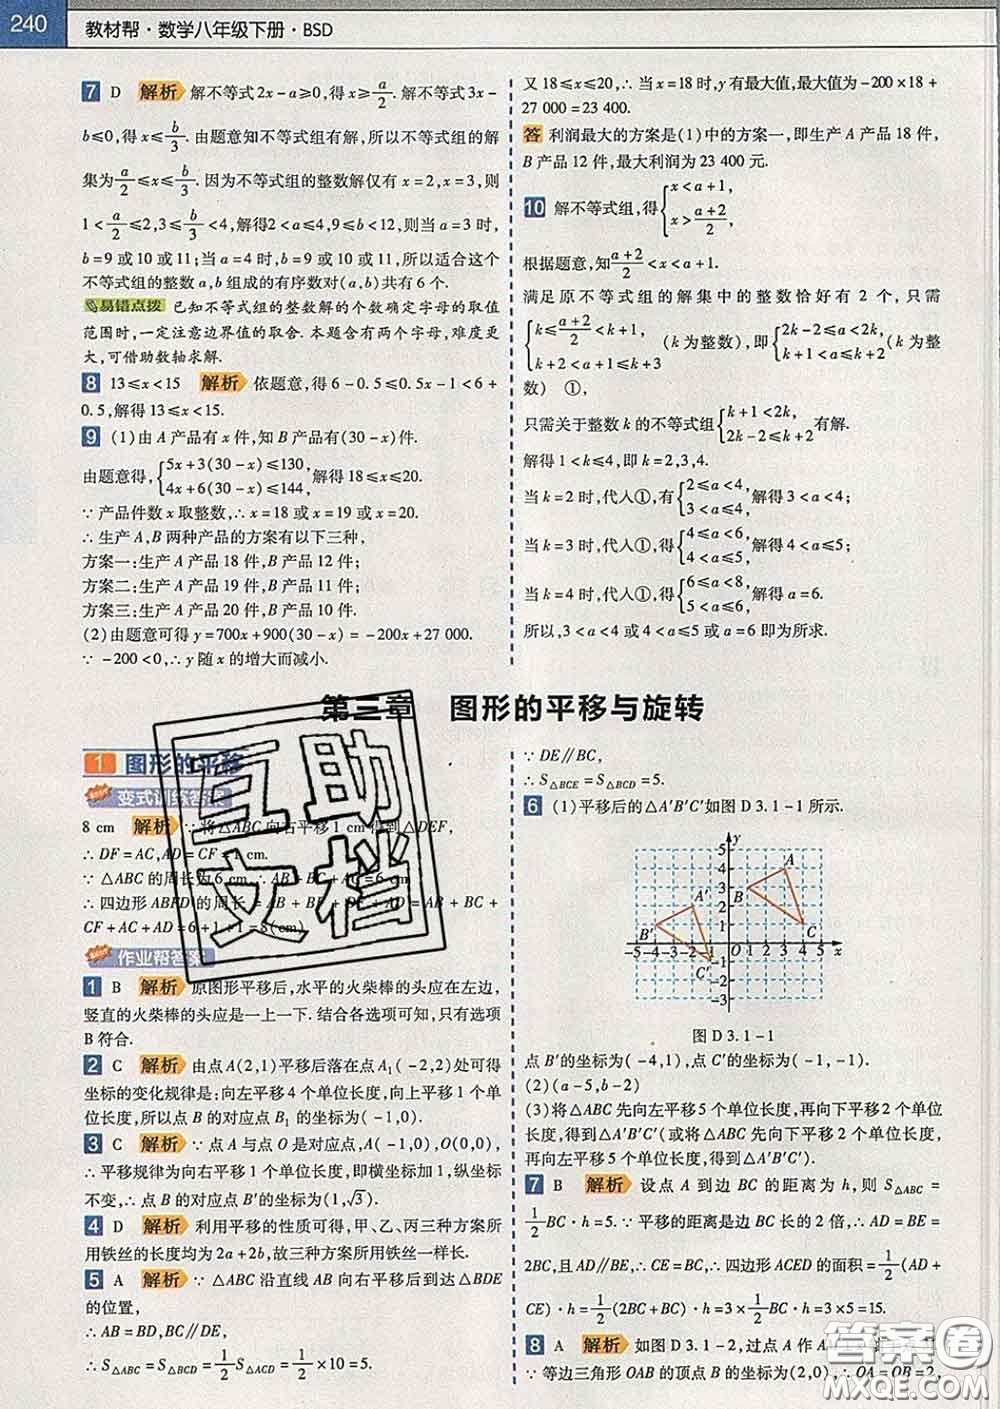 240 教材帮·数学八年级下册·BSD
7 D 解析 解不等式2x-a≥0,得x≥a/2. 解不等式3x-
b≤0,得x≤b/3. 由题意知不等式组有解,所以不等式组的解
集为a/2≤x≤b/3. 因为不等式组的整数解仅有x=2,x=3,则
1<a/2≤2,3≤b/3<4,解得2<a≤4,9≤b<12,则当a=3时,
b=9或10或11;当a=4时,b=9或10或11,所以适合这个
不等式组的整数a,b组成的有序数对(a,b)共有6个.
易错点拨 已知不等式组的整数解的个数确定字母的取值
范围时,一定注意边界值的取舍. 本题含有两个字母,难度更
大,可借助数轴求解.
8 13≤x<15 解析 依题意,得6-0.5≤0.5x-1<6+
0.5,解得13≤x<15.
9 (1)由A产品有x件,知B产品有(30-x)件.
由题意得,{5x+3(30-x)≤130, 4x+6(30-x)≤144,解得18≤x≤20.
∵产品件数x取整数,∴x=18或x=19或x=20.
∴生产A,B两种产品的方案有以下三种,
方案一:生产A产品18件,B产品12件;
方案二:生产A产品19件,B产品11件;
方案三:生产A产品20件,B产品10件.
(2)由题意可得y=700x+900(30-x)=-200x+27 000.
∵-200<0,∴y随x的增大而减小.
又18≤x≤20,∴当x=18时,y有最大值,最大值为-200×18+
27 000=23 400.
答 利润最大的方案是(1)中的方案一,即生产A产品18件,
B产品12件,最大利润为23 400元.
10 解不等式组,得{x<a+1, x>(a+2)/2,
根据题意,知(a+2)/2<x<a+1.
满足原不等式组的解集中的整数恰好有2个,只需
{k≤(a+2)/2<k+1, k+2<a+1≤k+3 (k为整数),即{2k-2≤a<2k, k+1<a≤k+2 (k为整
数) ①,
只需关于整数k的不等式组{k+1<2k, 2k-2≤k+2 有解.
解得1<k≤4,即k=2,3,4.
当k=2时,代入①,有{2≤a<4, 3<a≤4,解得3<a<4;
当k=3时,代入①,得{4≤a<6, 4<a≤5,解得4<a≤5;
当k=4时,代入①,得{6≤a<8, 5<a≤6,解得a=6.
所以,3<a<4或4<a≤5或a=6即为所求.
第三章 图形的平移与旋转
1 图形的平移
变式训练答案
8 cm 解析 ∵将△ABC向右平移1 cm得到△DEF,
∴DF=AC,AD=CF=1 cm.
∵△ABC的周长为6 cm,∴AB+BC+AC=6 cm.
∴四边形ABFD的周长=AB+BF+DF+AD=AB+BC+
CF+AC+AD=6+1+1=8(cm).
作业帮答案
1 B 解析 原图形平移后,水平的火柴棒的头应在左边,
竖直的火柴棒的头应是一上一下. 结合各选项可知,只有选项
B符合.
2 C 解析 由点A(2,1)平移后落在点A₁(-2,2)处可得
坐标的变化规律是:向左平移4个单位长度,向上平移1个单
位长度,所以点B的对应点B₁的坐标为(-1,0).
3 C 解析 ∵点A与点O是对应点,A(-1,0),O(0,0),
∴平移规律为向右平移1个单位长度,即横坐标加1,纵坐标
不变,∴点B的对应点B′的坐标为(1,√3).
4 D 解析 利用平移的性质可得,甲、乙、丙三种方案所
用铁丝的长度均为2a+2b,故三种方案所用铁丝一样长.
5 A 解析 ∵△ABC沿直线AB向右平移后到达△BDE
的位置,
∴AB=BD,BC∥DE,
∴S△ABC=S△BCD=1/2S△ACD=1/2×10=5.
∵DE∥BC,
∴S△BCE=S△BCD=5.
6 (1)平移后的△A′B′C′如图D 3.1-1所示.
y
5
4
3
2
1
A
B
C
A′
B′
C′
-5-4-3-2-1 O 1 2 3 4 5 x
-1
-2
-3
图D 3.1-1
点B′的坐标为(-4,1),点C′的坐标为(-1,-1).
(2)(a-5,b-2)
(3)将△ABC先向左平移5个单位长度,再向下平移2个单位
长度,得到△A′B′C′(或将△ABC先向下平移2个单位长度,
再向左平移5个单位长度,得到△A′B′C′).
7 B 解析 设点A到边BC的距离为h,则S△ABC=
1/2BC·h=5. ∵平移的距离是边BC长的2倍,∴AD=BE=
2BC,且AD∥BE,∴四边形ACED的面积=1/2(AD+
CE)·h=1/2(2BC+BC)·h=3×1/2BC·h=3×5=15.
8 A 解析 如图D 3.1-2,过点A作
∵等边三角形OAB的顶点B的坐标为(2,0),∴OA=OB=2,
互助文档
答案圈
MXQE.COM